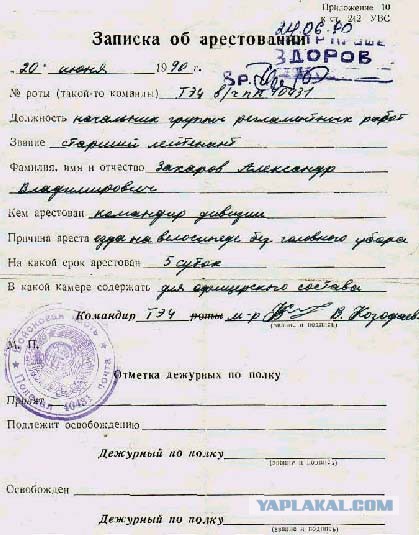 Приложение 10
к ст. 242 УВС
24.06.90
ЗДОРОВ
Записка об арестовании
„20“ июня 1990 г.
№ роты (такой-то команды) ТЭЧ в/ч пп 40431
Должность начальник группы регламентных работ
Звание старший лейтенант
Фамилия, имя и отчество Захаров Александр
Владимирович
Кем арестован командир дивизии
Причина ареста езда на велосипеде без головного убора
На какой срок арестован 5 суток
В какой камере содержать для офицерского состава
Командир ТЭЧ роты м-р В.
(звание и подпись)
М. П.
Полевая почта 40431
Отметка дежурных по полку
Принят
Подлежит освобождению
Дежурный по полку
(звание и подпись)
Освобожден
Дежурный по полку
(звание и подпись)
YAPLAKAL.COM